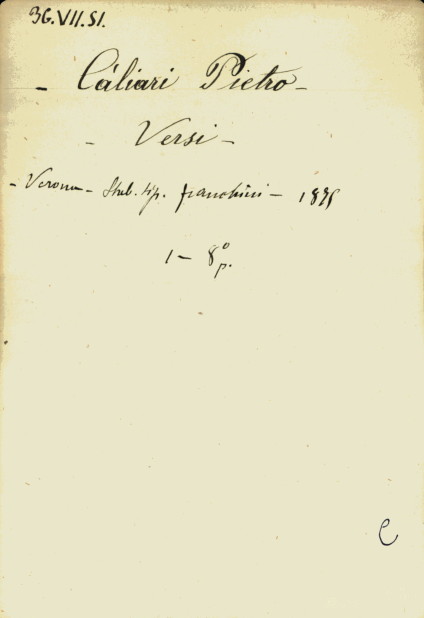 36.VII.51.
- Cáliari Pietro -
- Versi -
- Verona - Stab. tip. franchini - 18
1 - 8º p.
C